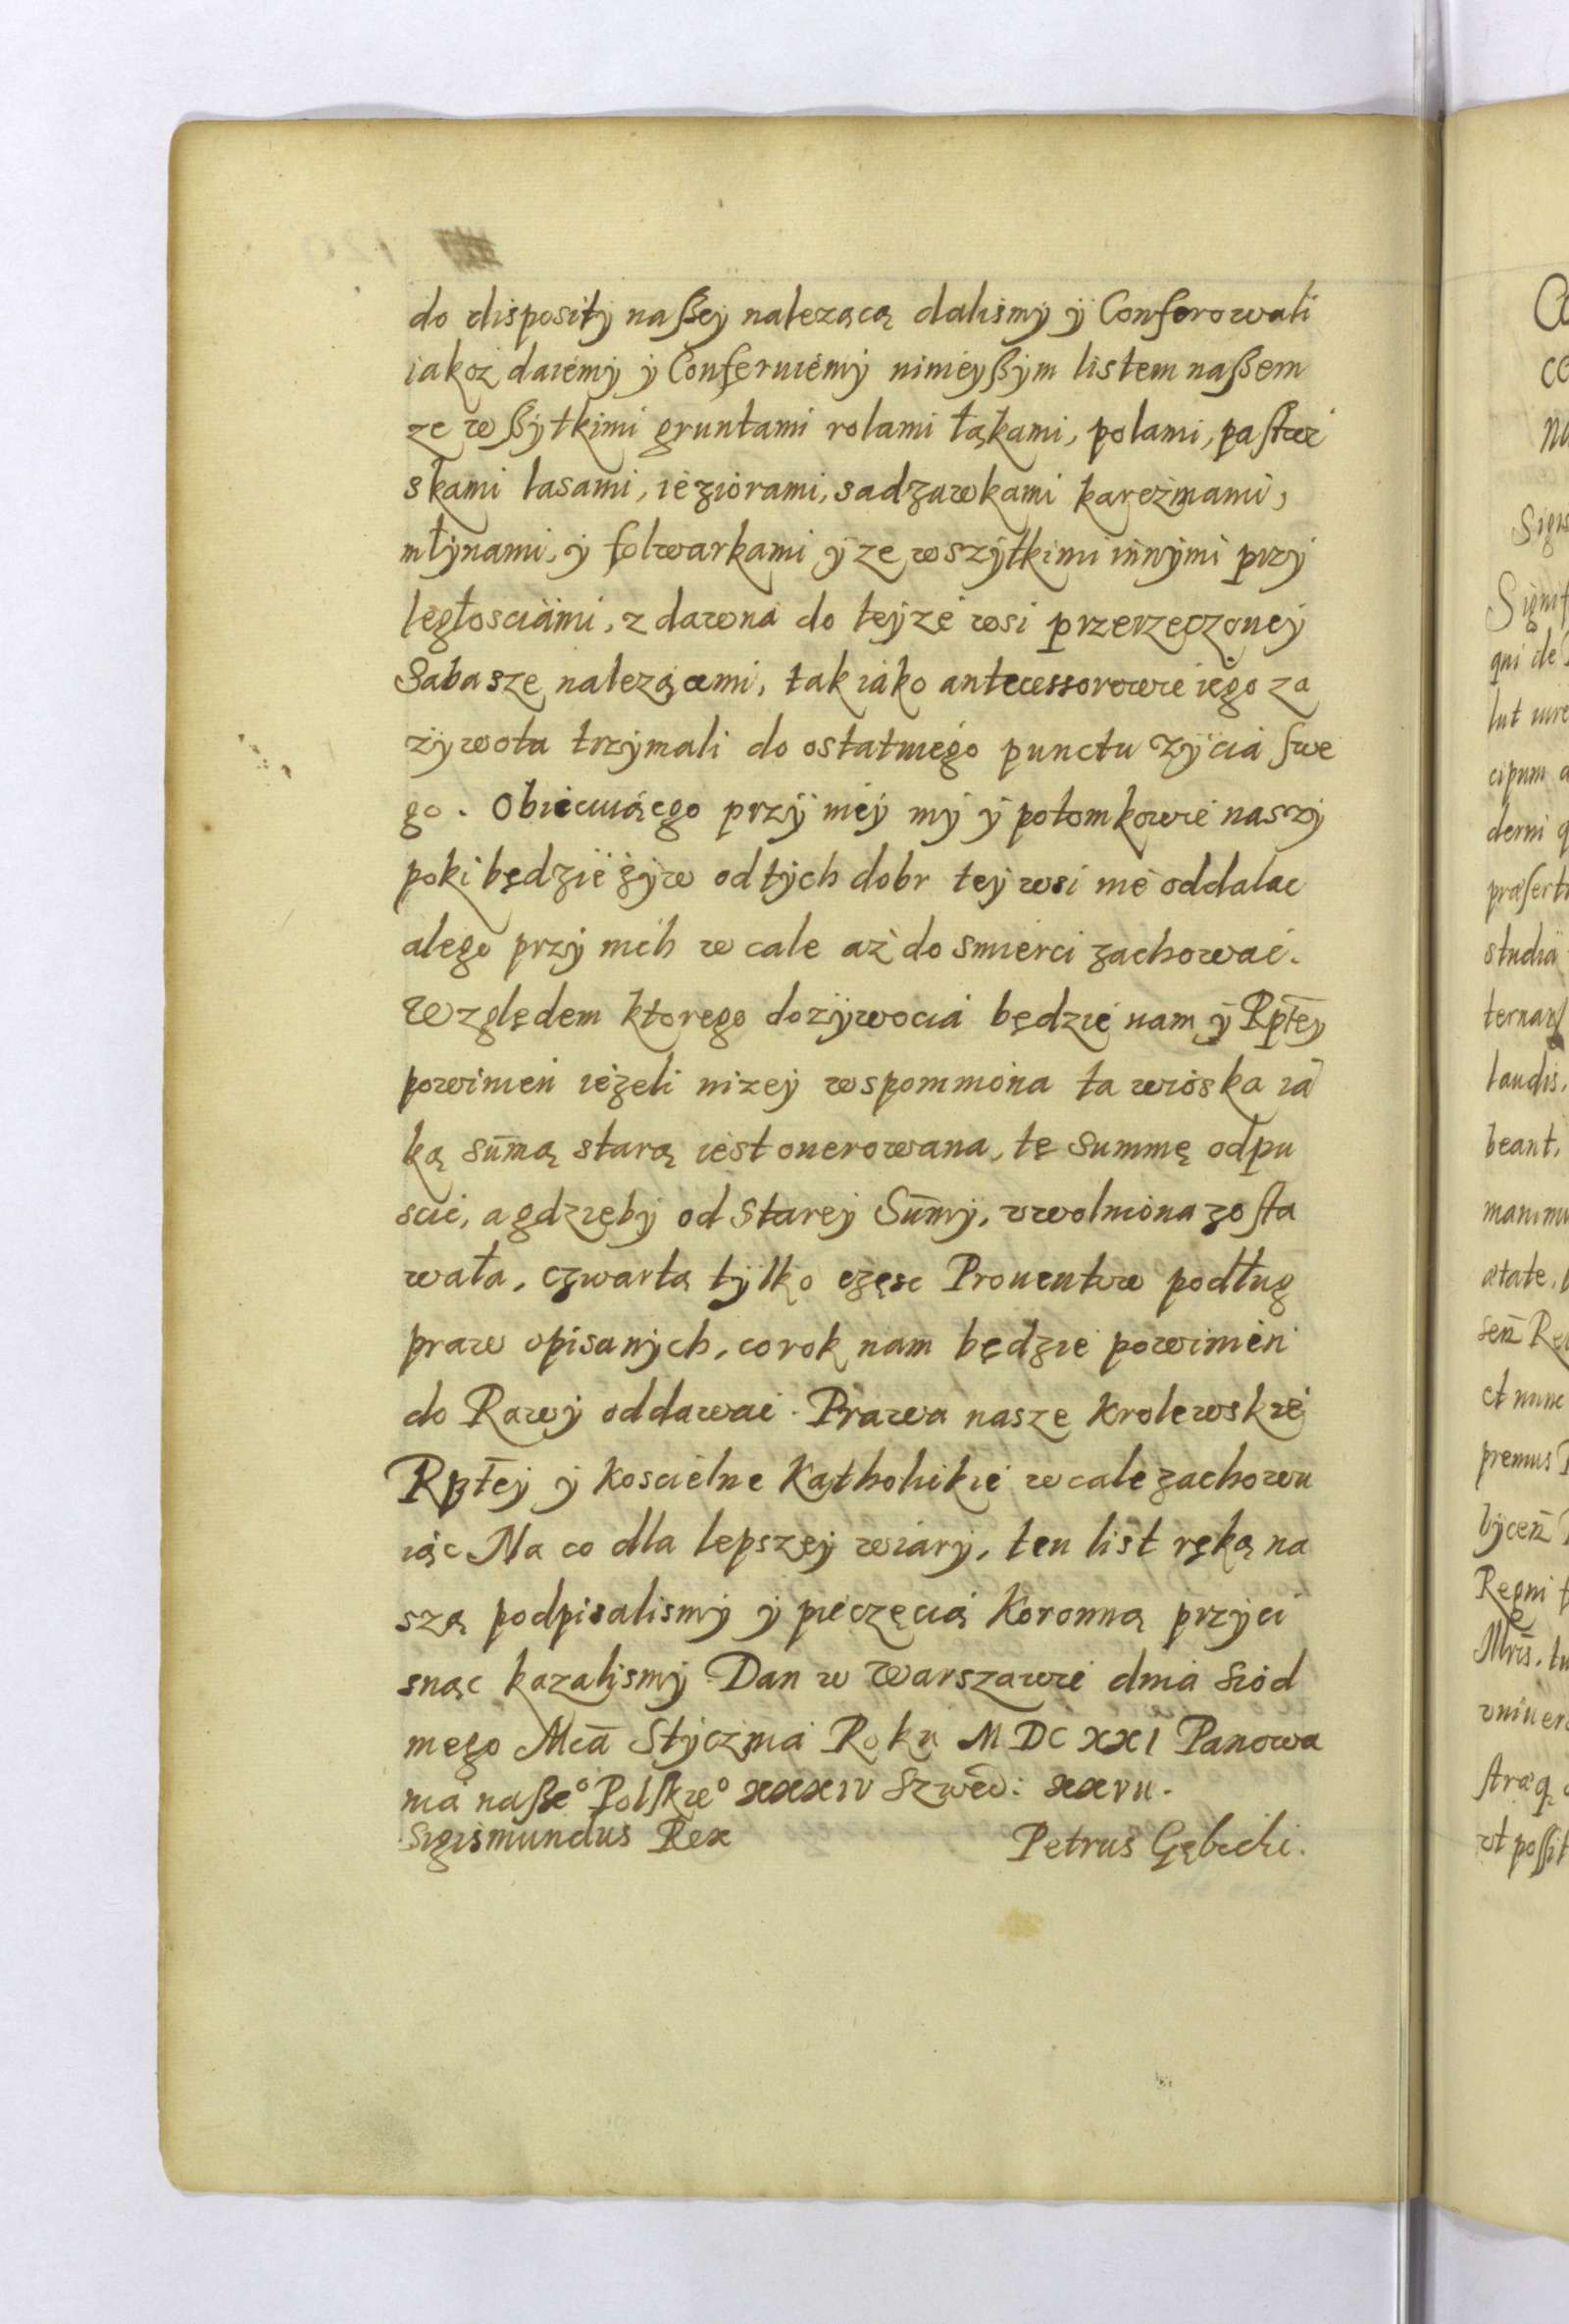 do disposity naßey nalezącą dalismy y Conferowali
iakoz daiemy y Conferuiemy ninieyßym listem naßem
ze wßytkimi gruntami rolami łąkami, polami, pastwi
skami lasami, ieziorami, sadzawkami karczmami,
młynami, y folwarkami y ze wszytkimi innymi przy
ległosciami, z dawna do teyze wsi przerzeczoney
Sabasze nalezącemi, tak iako antecessorowie iego za
zywota trzymali do ostatniego punctu zycia swe
go. Obiecuiąc go przy niey my y potomkowie naszy
poki będzie zyw od tych dobr tey wsi nie oddalac
ale go przy nich w cale az do smierci zachować.
Względem ktorego dozywocia będzie nam y Rptey
powinien iezeli nizey wspomniona ta wioska ia
ką sūmą starą iest onerowana, tę summę odpu
scić, a gdzieby od starey Sūmy, uwolniona zosta
wała, czwartą tylko częsc Prouentow podług
praw opisanych, co rok nam będzie powinien
do Rawy oddawać. Prawa nasze Krolewskie
Rptey y koscielne Katholickie w cale zachowu
iąc Na co dla lepszey wiary, ten list ręką na
szą podpisalismy y pieczęcią Koronną przyci
snąc kazalismy Dan w Warszawie dnia siod
mego Mcā Stycznia Roku MDCXXI Panowa
nia naße° Polskie° XXXIV Szwed: XXVII.
Sigismundus Rex Petrus Gębicki.
Sigis
Signif
qui de
lut iure
cipum a
derni q
præserti
studia
ternaq
laudis,
beant,
ætate,
et nunc
premus
Regni
ut possit